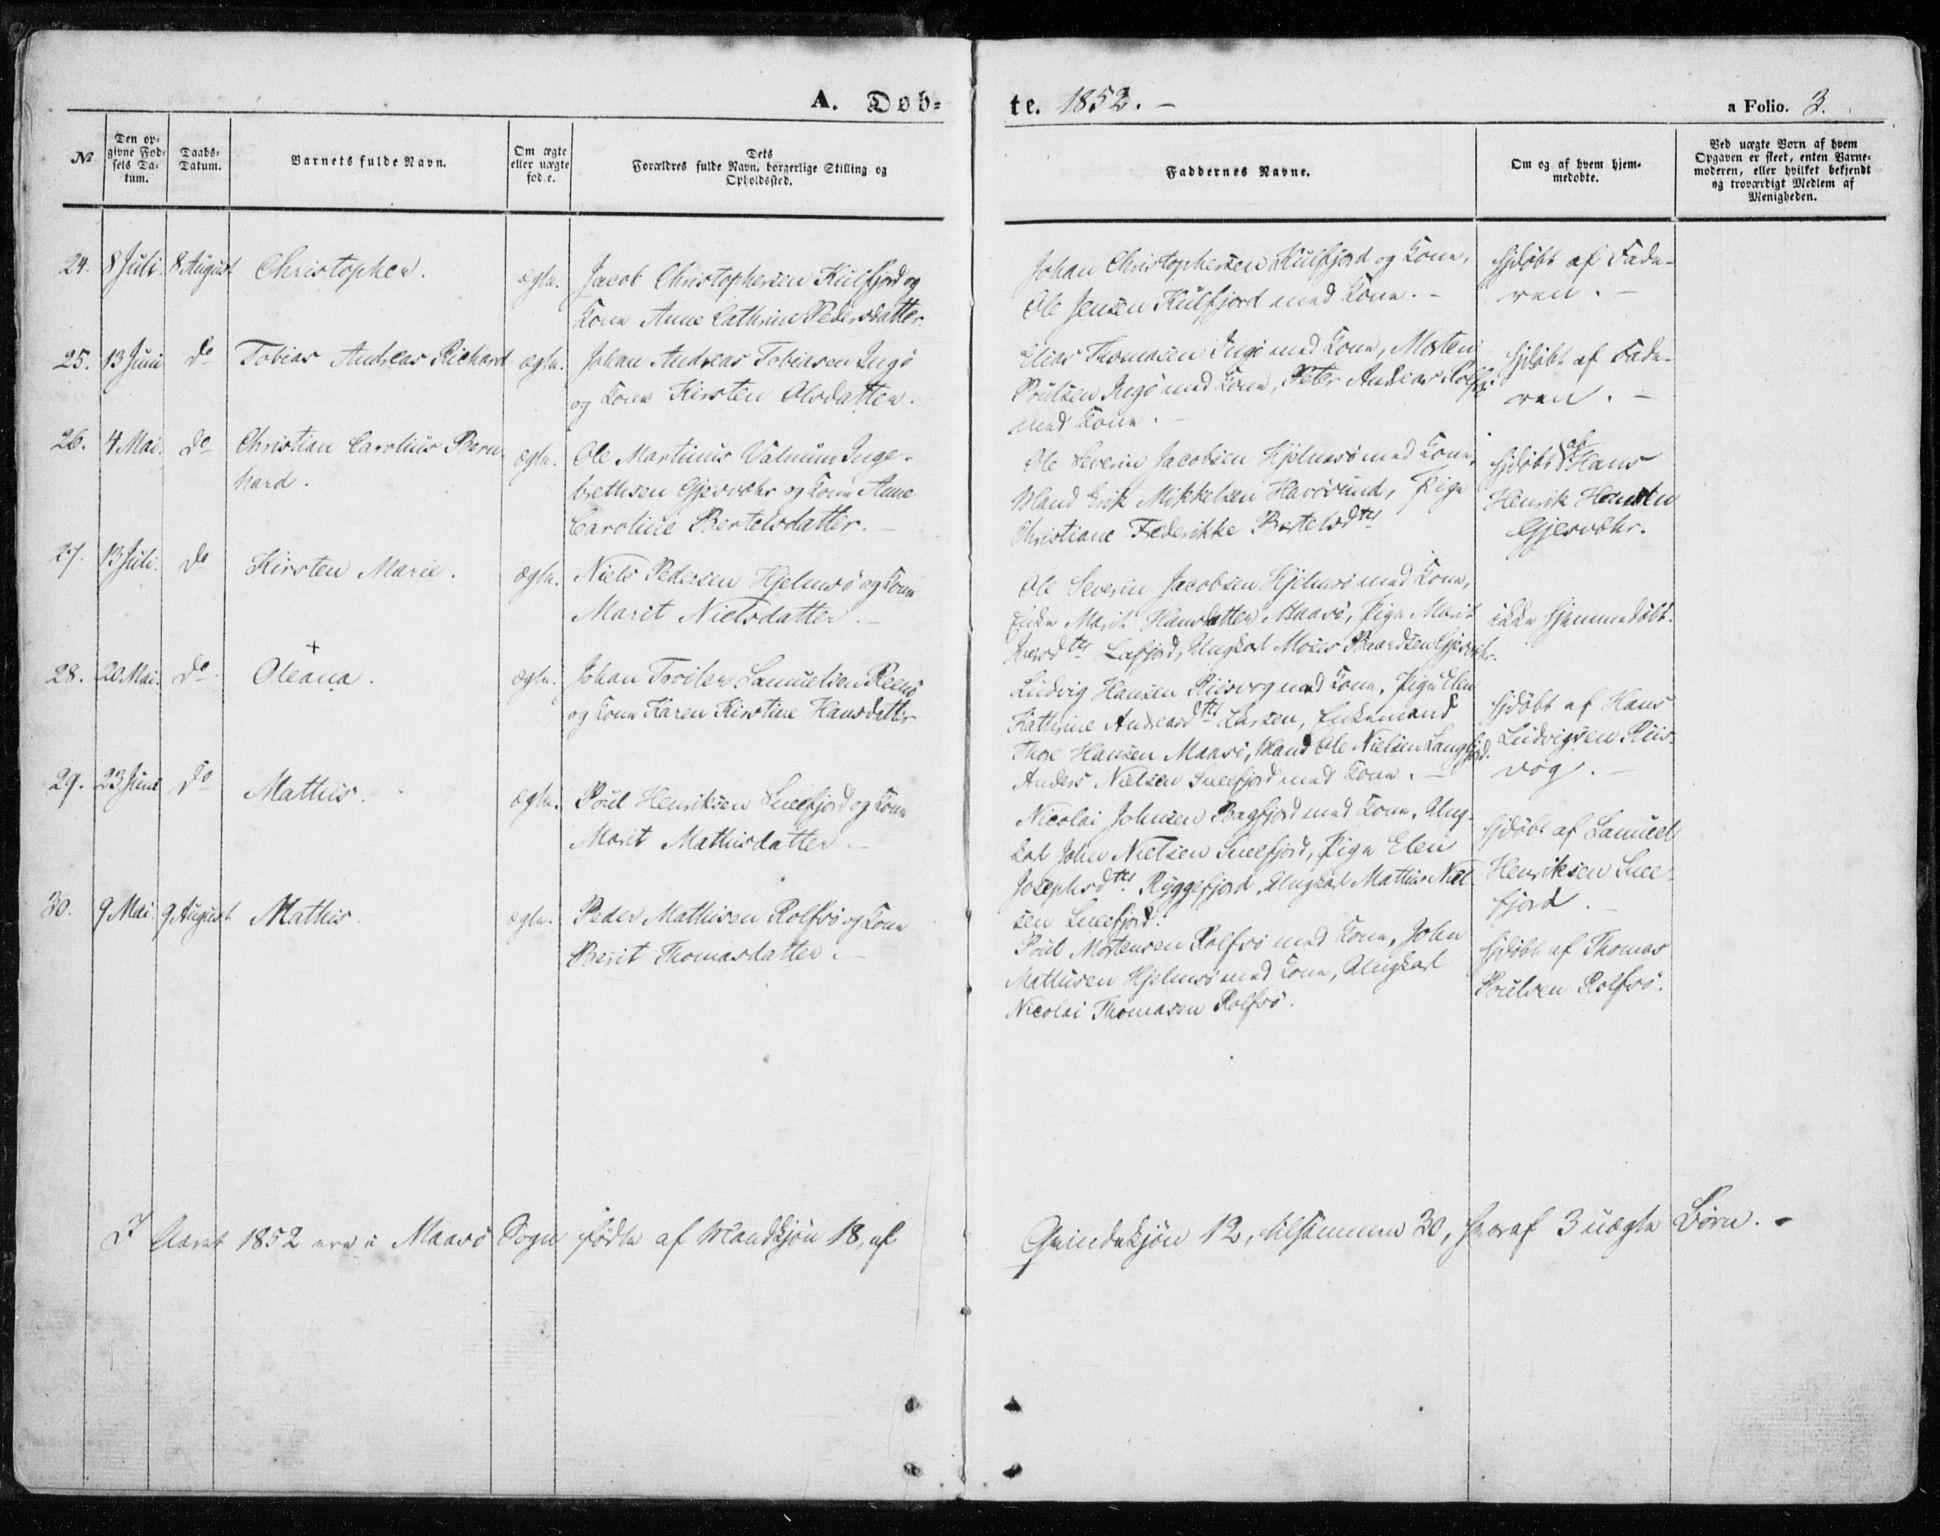 A. Døb=
te. 1852. –
a Folio. 3.
№
Den op-
givne Fød-
sels Da-
tum.
Daabs-
Datum.
Barnets fulde Navn.
Om ægte
eller uægte
født.
Dets
Forældres fulde Navn, borgerlige Stilling og
Opholdssted.
Faddernes Navne.
Om og af hvem hjem-
medøbte.
Ved uægte Børn af hvem
Opgaven er skeet, enten Barne-
moderen, eller hvilket bekjendt
og troværdigt Medlem af
Menigheden.
24. 8 Juli 8 August Christopher. ægte.
Jacob Christophersen Kulfjord og
Kone Anne Cathrine Pedersdatter.
Johan Christophersen Kulfjord og Kone,
Ole Jensen Kulfjord med Kone. –
Hjdøbt af Fade-
ren. –
25. 13 Juni do Tobias Andreas Richard ægte.
Johan Andreas Tobiasen Ingø
og Kone Kirsten Olsdatter.
Elias Thomasen Ingø med Kone, Morten
Poulsen Ingø med Kone, Peter Andreas Rolfsø
med Kone. –
Hjdøbt af Fade-
ren. –
26. 4 Mai. do Christian Carolius Bern-
hard. ægte.
Ole Martinus Inge-
brethsen Gjesvær og Kone Anne
Caroline Bertelsdatter. –
Ole Severin Jacobsen Hjelmsø med Kone,
Mand Erik Mikkelsen Havøsund, Pige
Christiane Frederikke Bertelsdter
Hjdøbt af Hans
Henrik Hansen
Gjesvær.
27. 13 Juli. do Kirsten Marie. ægte.
Niels Pedersen Hjelmsø og Kone
Marit Nielsdatter. –
Ole Severin Jacobsen Hjelmsø med Kone,
Enke Marit Hansdatter Maasø, Pige Marit
Lafjord, Ungkarl Moses Baardsen Gjesvær.
ikke hjemmedøbt.
28. 20 Mai. do +
Oleana. ægte.
Johan Samuelsen
og Kone Karen Kirstine Hansdatter
Ludvig Hansen Riisvog med Kone, Pige Elen
Kathrine Andreasdter Larsen, Enkemand
Thore Hansen Maasø, Mand Ole Nielsen Langfjord.
Anders Nielsen Sneefjord med Kone. –
Hjdøbt af Hans
Ludvigsen Riis-
vog. –
29. 23 Juni do Mathis. ægte.
Poul Henriksen Sneefjord og Kone
Marit Mathisdatter. –
Nicolai Johnsen Bagfjord med Kone, Ung-
karl John Nielsen Sneefjord, Pige Elen
Josephsdter Ryggefjord, Ungkarl Mathis Niel-
sen Sneefjord.
Hjdøbt af Samuel
Henriksen Snee-
fjord. –
30. 9 Mai. 9 August. Mathis. ægte.
Peder Mathisen Rolfsø og Kone
Berit Thomasdatter. –
Poul Mortensen Rolfsø med Kone, John
Mathisen Hjelmsø med Kone, Ungkarl
Nicolai Thomasen Rolfsø.
Hjdøbt af Thomas
Poulsen Rolfsø.
I Aaret 1852 ere i Maasø Sogn fødte af Mandkjøn 18, af
Qvindekjøn 12, tilsammen 30, heraf 3 uægte Børn. –